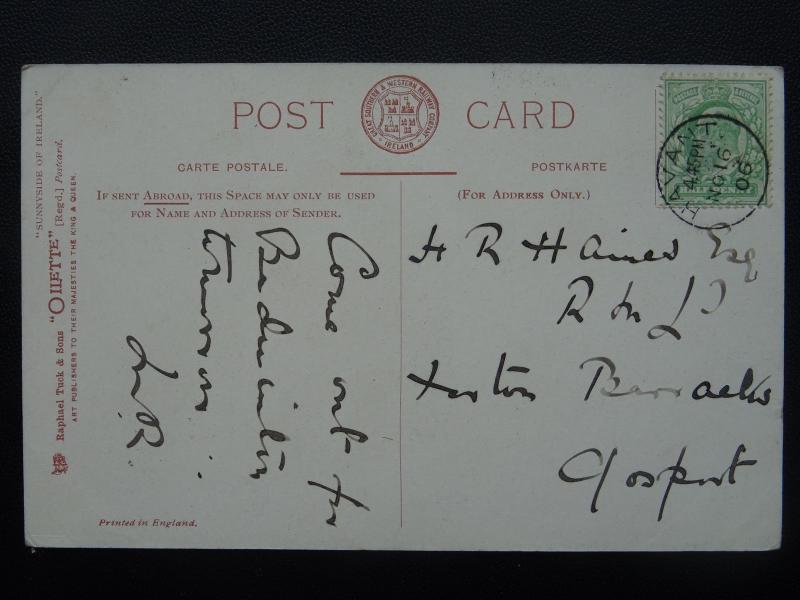 POST CARD
GREAT SOUTHERN & WESTERN RAILWAY COMPANY
· IRELAND ·
CARTE POSTALE.
POSTKARTE
IF SENT ABROAD, THIS SPACE MAY ONLY BE USED
FOR NAME AND ADDRESS OF SENDER.
(FOR ADDRESS ONLY.)
"SUNNYSIDE OF IRELAND."
Raphael Tuck & Sons "OILETTE" [Regd.] Postcard.
ART PUBLISHERS TO THEIR MAJESTIES THE KING & QUEEN.
Printed in England.
POSTAGE & REVENUE
HALFPENNY
HAVANT
4.45 PM
NO 16
06
Come out for
Badminton
tomorrow.
H R Haines Esq
R M L I
Forton Barracks
Gosport